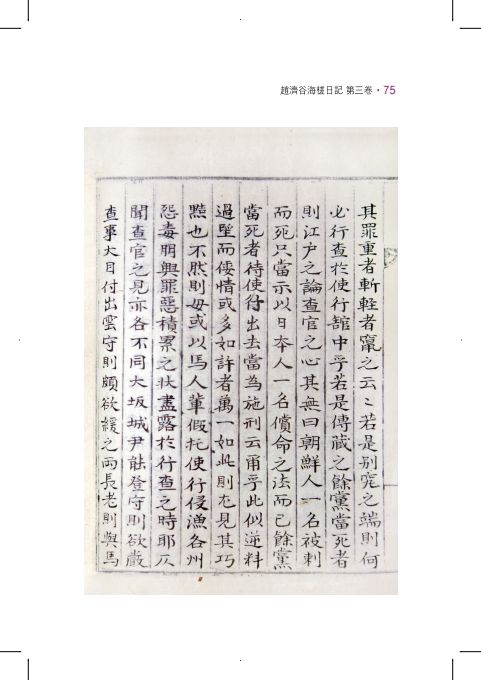 趙濟谷海槎日記 第三卷 · 75
其罪重者斬輕者竄之云〻若是別究之端則何
必行查扵使行舘中乎若是傳蔵之餘黨當死者
則江户之論查官之心其無曰朝鮮人一名被刺
而死只當示以日夲人一名償命之法而已餘黨
當死者待使行出去當為施刑云甭乎此似逆料
過塈而倭情或多如許者萬一如此則尤見其巧
黠也不然則毋或以馬人輩假托使行侵漁各州
怨毒朋興罪惡積累之狀盡露扵行查之時耶仄
聞查官之見亦各不同大坂城尹能登守則欲嚴
查事大目付出雲守則頗欲緩之兩長老則與馬